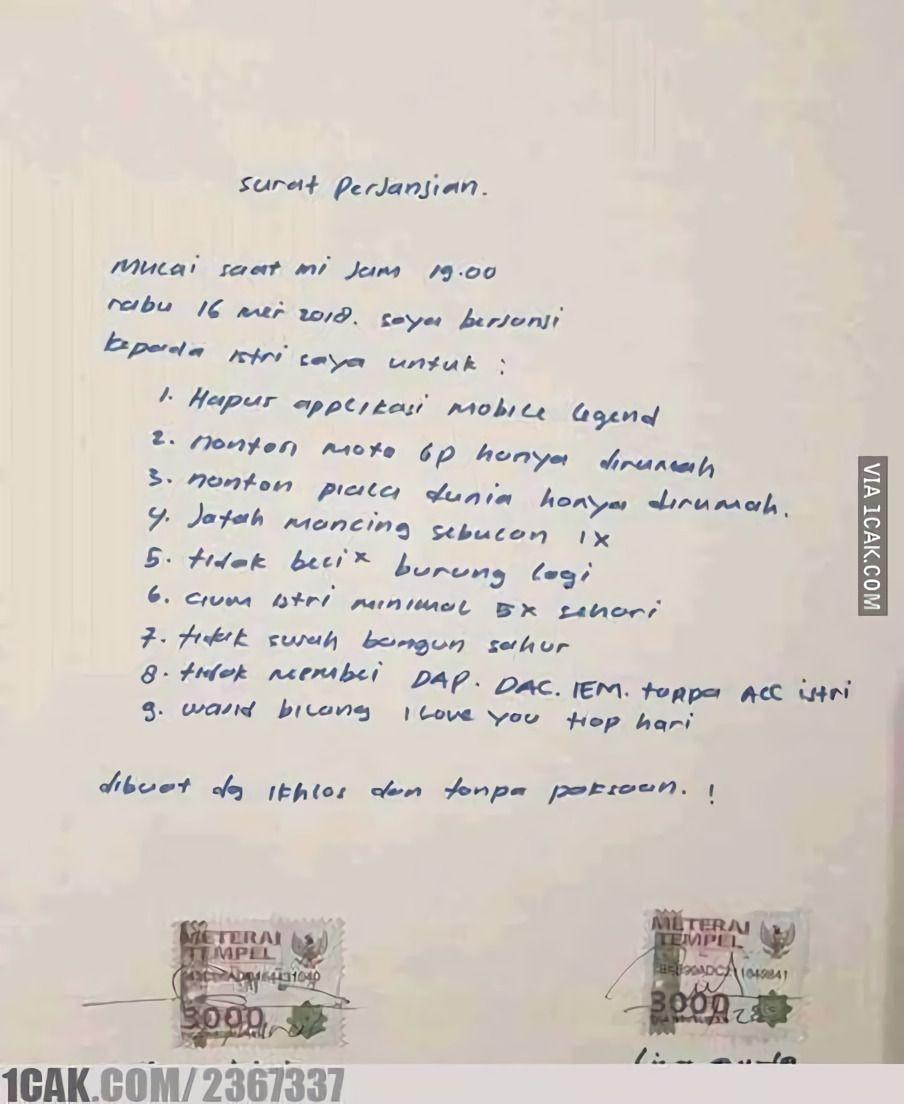 surat Perjanjian.
Mulai saat ini Jam 19.00
rabu 16 mei 2018. saya berjanji
kepada istri saya untuk :
1. Hapus applikasi mobile legend
2. nonton moto Gp hanya dirumah
3. nonton piala dunia hanya dirumah.
4. Jatah mancing sebulan 1x
5. tidak beli x burung lagi
6. cium istri minimal 5x sehari
7. tidak susah bangun sahur
8. tidak membeli DAP. DAC. IEM. tanpa ACC istri
9. wajib bilang I Love you tiap hari
dibuat dg ikhlas dan tanpa paksaan. !
METERAI
TEMPEL
3000
METERAI
TEMPEL
3000
VIA 1CAK.COM
1CAK.COM/2367337